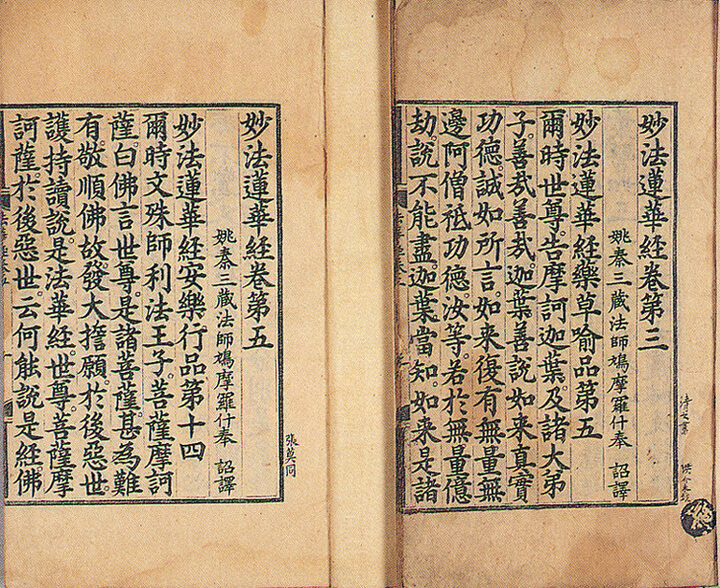 妙法蓮華經卷第三
姚秦三藏法師鳩摩羅什奉 詔譯
妙法蓮華經藥草喻品第五
爾時世尊告摩訶迦葉及諸大弟
子善哉善哉迦葉善說如来真實
功德誠如所言如来復有無量無
邊阿僧祇功德汝等若於無量億
劫說不能盡迦葉當知如来是諸
妙法蓮華經卷第五
姚秦三藏法師鳩摩羅什奉 詔譯
妙法蓮華經安樂行品第十四
爾時文殊師利法王子菩薩摩訶
薩白佛言世尊是諸菩薩甚為難
有敬順佛故發大擔願於後惡世
護持讀說是法華經世尊菩薩摩
訶薩於後惡世云何能說是經佛